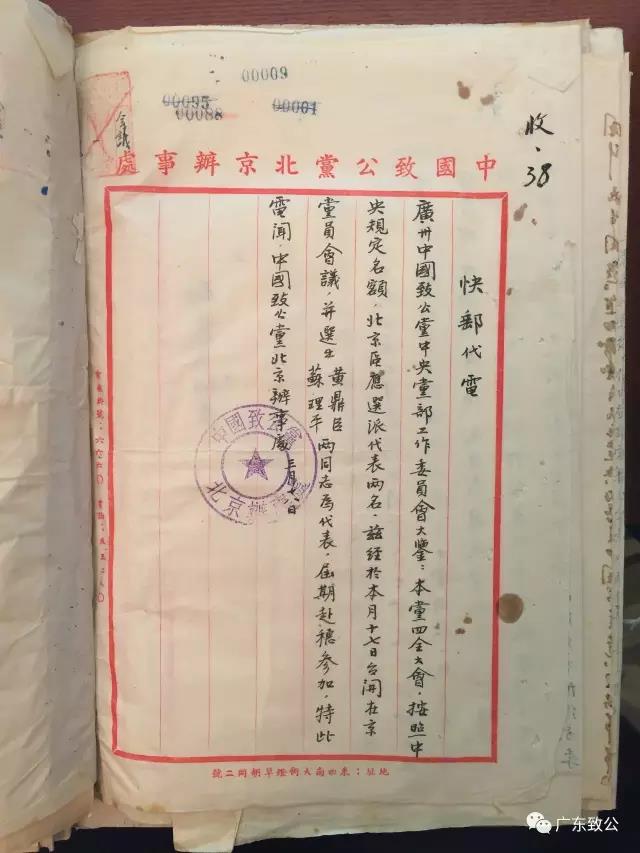 00009
00095
00088
00001
收、38
中國致公黨北京辦事處
快郵代電
廣州中國致公黨中央黨部工作委員會大鑒：本黨四全大會，按照中
央規定名額，北京區應選派代表兩名，茲經於本月十七日召開在京
黨員會議，并選出黃鼎臣蘇理平兩同志為代表，屆期赴穗參加，特此
電聞，中國致公黨北京辦事處 三月十八日
中國致公黨
北京辦事處
地址：東四南大街燈草胡同二號
广东致公